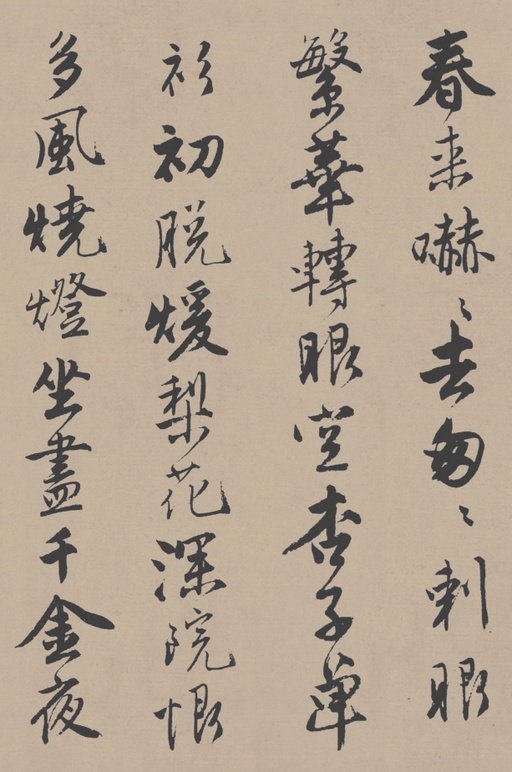 春来嚇〻去匆〻刺眼
繁華轉眼空杏子單
衫初脱煖梨花深院恨
多風燒燈坐盡千金夜